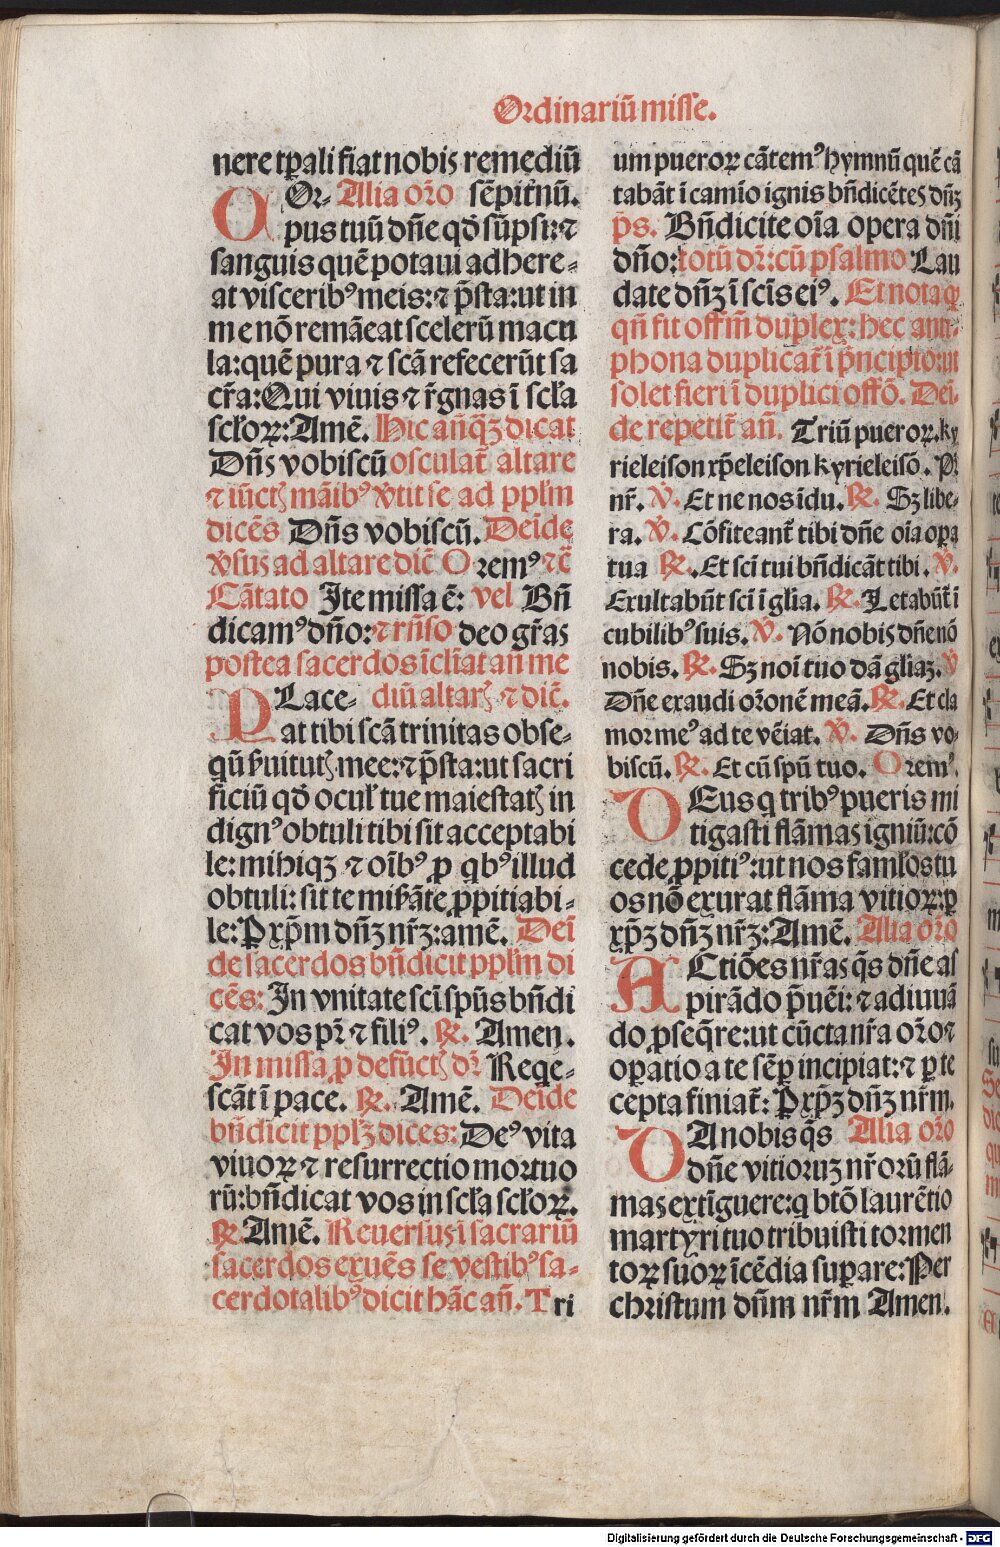 Ordinariū misse.
nere tꝑali fiat nobis remediū
Oꝛ- Alia oꝛo sēpitnū.
Opus tuū dñe qđ sūpsi: ⁊
sanguis quē potaui adhere-
at viscerib⁹ meis: ⁊ p̄sta: ut in
me nō remāeat scelerū macu
la: quē pura ⁊ scā refecerūt sa
cr̄a: Qui viuis ⁊ r̄gnas ī scła
scłoꝝ: Amē. Hic añq̄ꝫ dicat
Dñs vobiscū osculat̄ altare
⁊ iūctꝭ māib⁹ v̄tit se ad ppl̄m
dicēs Dñs vobiscū. Deīde
v̄sus ad altare dic̄ Orem⁹ ⁊c̄
Cātato Ite missa ē: vel Bñ
dicam⁹ dño: ⁊ rñso deo gr̄as
postea sacerdos īclīat an̄ me
Lace- diū altarꝭ ⁊ dic̄.
Pat tibi scā trinitas obse-
qū ẜuitutꝭ mee: ⁊ p̄sta: ut sacri
ficiū qđ ocuł tue maiestatꝭ in
dign⁹ obtuli tibi sit acceptabi
le: mihiqꝫ ⁊ oīb⁹ ꝓ qb⁹ illud
obtuli: sit te miẜāte ꝓpitiabi-
le: P xp̄m dñꝫ nr̄ꝫ: amē. Deī
de sacerdos bñdicit ppl̄m di
cēs: In vnitate sci spūs bñdi
cat vos pr̄ ⁊ fili⁹. ℞. Amen.
In missa ꝓ defūctꝭ dr̄ Reqe-
scāt ī pace. ℞. Amē. Deīde
bñdicit pplꝫ dices: De⁹ vita
viuoꝝ ⁊ resurrectio mortuo
rū: bñdicat vos in scła scłoꝝ.
℞. Amē. Reuersus ī sacrariū
sacerdos exuēs se vestib⁹ sa-
cerdotalib⁹ dicit hāc an̄. Tri
um pueroꝝ cātem⁹ hymnū quē cā
tabāt ī camīo ignis bñdicētes dñꝫ
p̄s. Bñdicite oīa opera dñi
dño: totū dr̄: cū psalmo Lau
date dñꝫ ī scīs ei⁹. Et nota ꝙ
qñ fit offm̄ duplex: hec anti-
phona duplicat̄ ī p̄ncipio: ut
solet fieri ī duplici offō. Deī-
de repetit̄ an̄. Triū pueroꝝ. ky
rieleison xp̄eleison kyrieleisō. Pr̄
nr̄. ℣. Et ne nos īdu. ℞. Sꝫ libe-
ra. ℣. Cōfiteant̄ tibi dñe oīa oꝑa
tua ℞. Et sci tui bñdicāt tibi. ℣.
Exultabūt sci ī glia. ℞. Letabūt̄ ī
cubilib⁹ suis. ℣. Nō nobis dñe nō
nobis. ℞. Sꝫ noī tuo dā gliaꝫ. ℣
Dñe exaudi oꝛonē meā. ℞. Et cla
mor me⁹ ad te vēiat. ℣. Dñs vo-
biscū. ℞. Et cū spū tuo. Orem⁹.
DEus q trib⁹ pueris mi
tigasti flāmas igniū: cō
cede ꝓpiti⁹: ut nos famłos tu
os nō exurat flāma vitioꝝ: ꝑ
xp̄ꝫ dñꝫ nr̄ꝫ: Amē. Alia oꝛo
ACtiōes nr̄as q̄s dñe as
pirādo p̄uēi: ⁊ adiuuā
do ꝓseq̄re: ut cūcta nr̄a oꝛo ⁊
oꝑatio a te sēꝑ incipiat: ⁊ ꝑ te
cepta finiat̄: P xp̄ꝫ dñꝫ nr̄m.
DA nobis q̄s Alia oꝛo
dñe vitioruꝫ nr̄orū flā-
mas extīguere: q bt̄o laurētio
martyri tuo tribuisti tormen
toꝝ suoꝝ īcēdia suꝑare: Per
christum dn̄m nr̄m Amen.
Digitalisierung gefördert durch die Deutsche Forschungsgemeinschaft - DFG